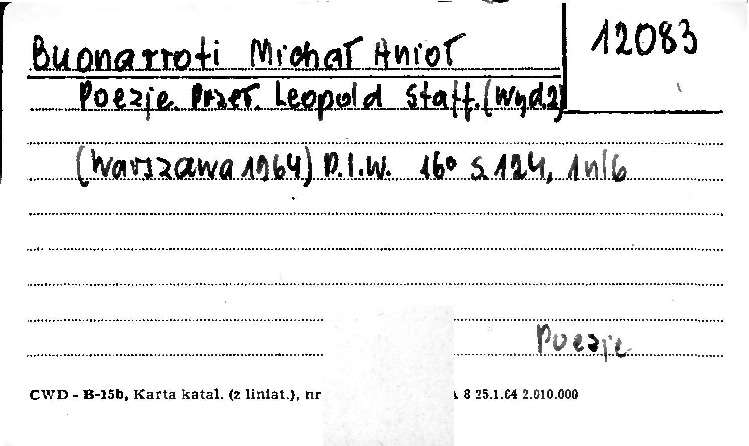 12083
Buonarroti Michał Anioł
Poezje. Przeł. Leopold Staff. (Wyd.2)
(Warszawa 1964) P.I.W. 16° s. 124, 1 nlb
Poezje
CWD - B-15b, Karta katal. (z liniat.), nr A 8 25.1.64 2.010.000